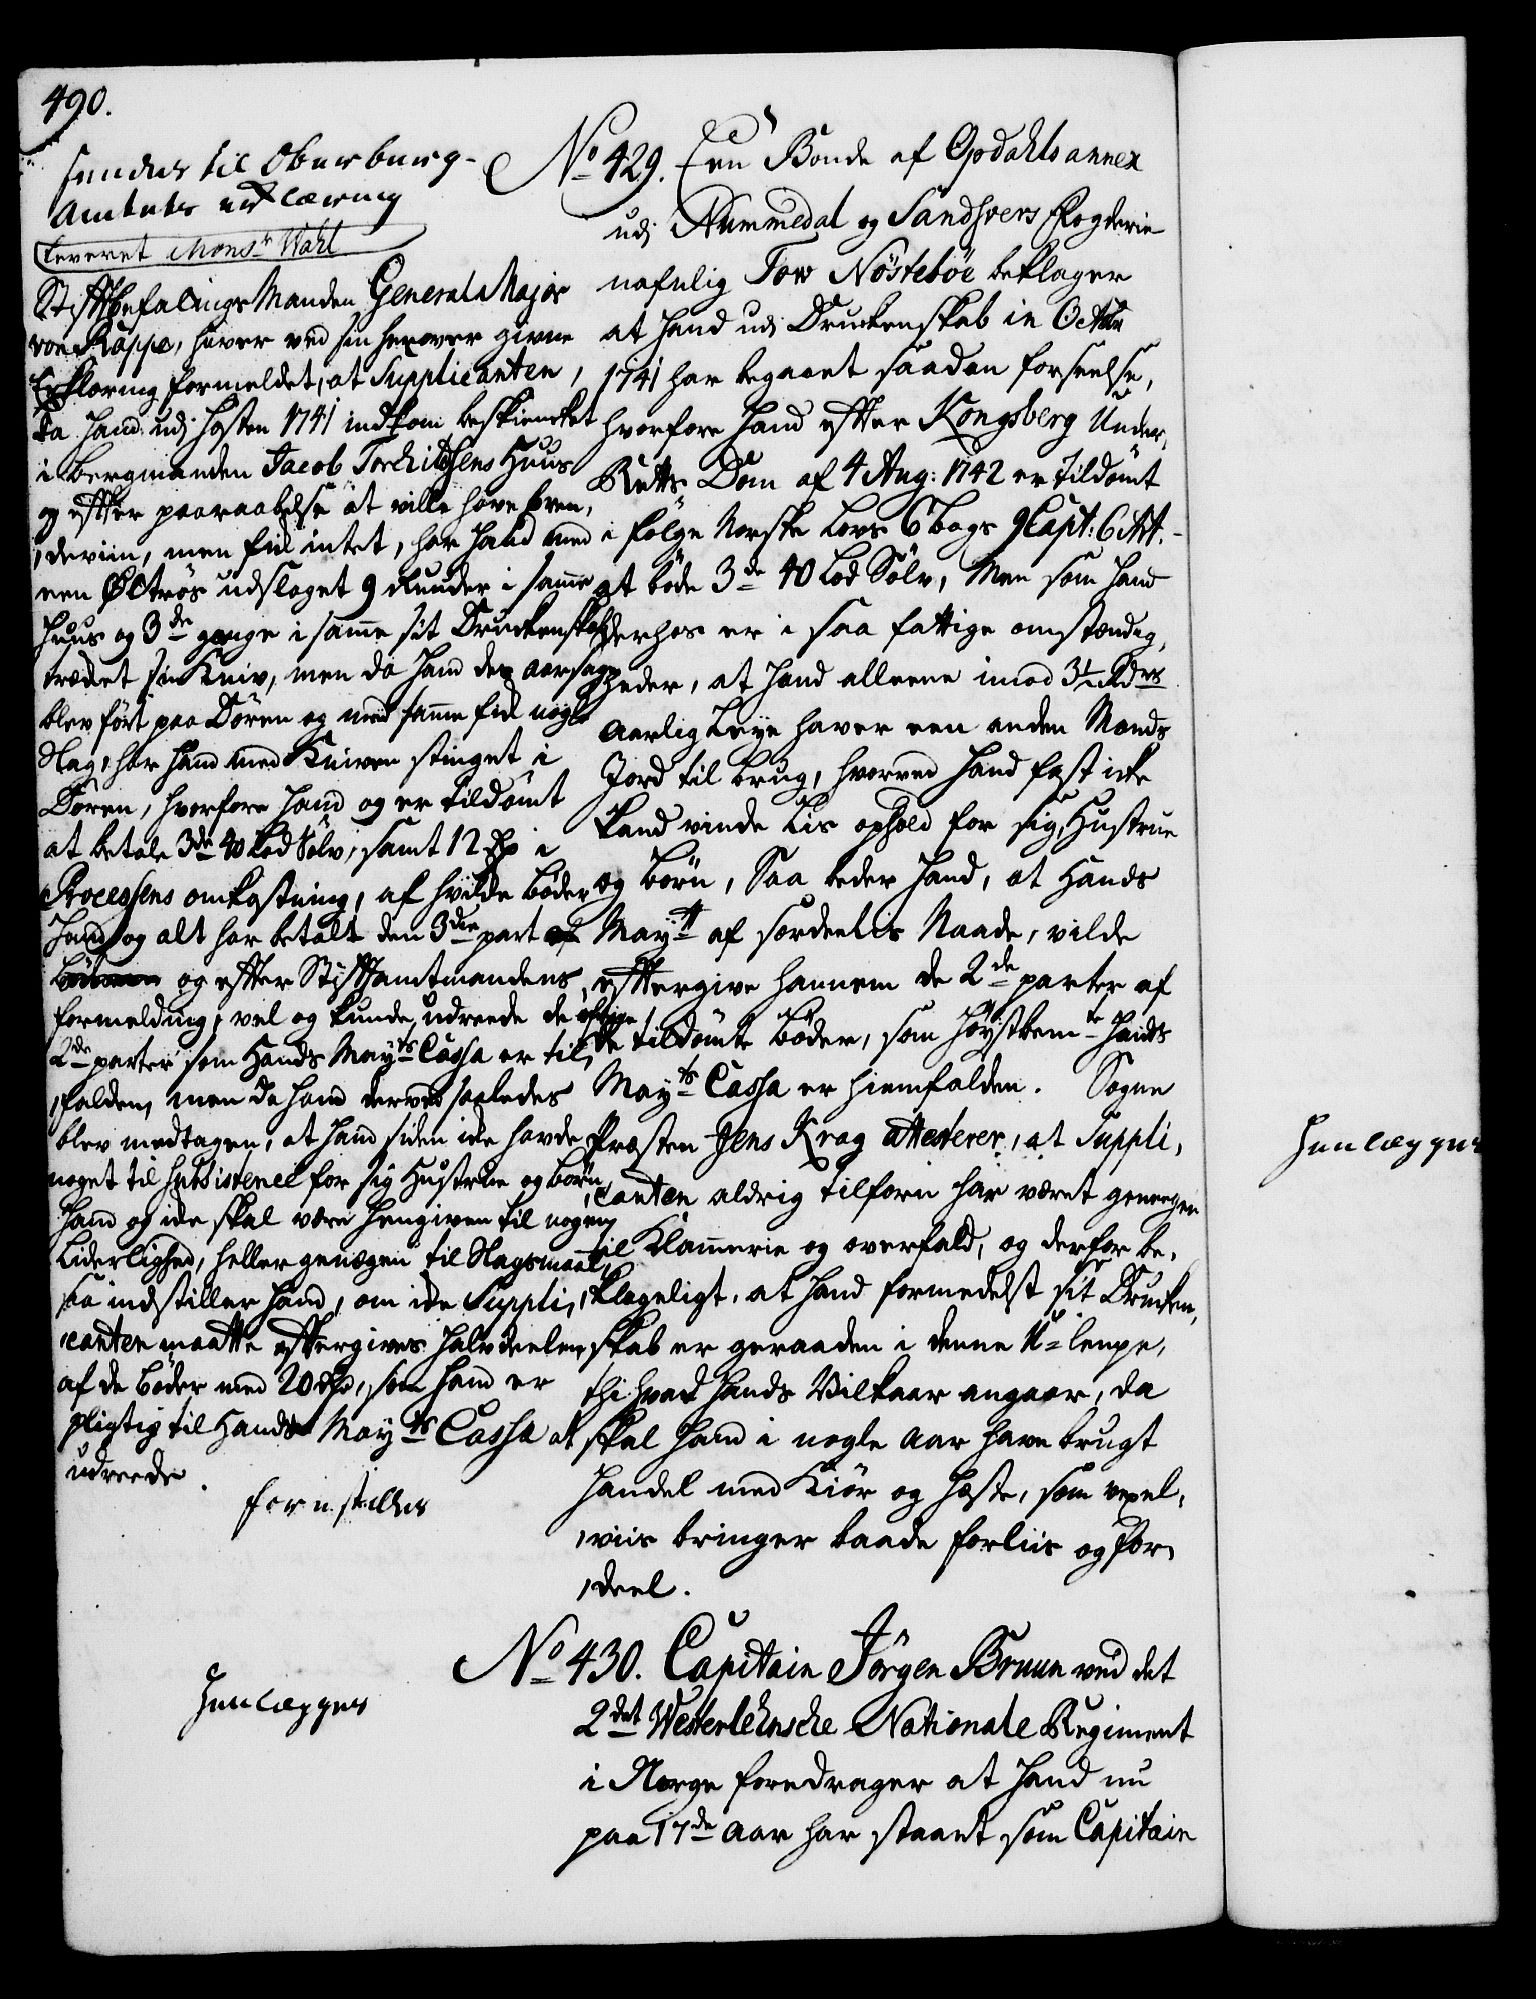 490.
sendes til Oberberg-
Amtets erklæring
leveret Mons.r Wahl
Stiftbefalings Manden General Major
von Rappe, haver ved sin herover givne
Erklæring formeldet, at Supplicanten,
da hand udi Høsten 1741 indkom beskiencket
i bergmanden Jacob Torchildsens Huus
og efter paaraabelse at ville have bren,
,deviin, men fik intet, har hand med
een Øltrøs udslaget 9 Ruuder i samme
Huus og 3de gange i samme sit Druckenskab
trædet sin Kniv, men da hand der aarsage
blev ført paa Dören og med samme fik nogle
Slag, har hand med Kniven stinget i
Dören, hvorfore hand og er tildömt
at betale 3de 40 Lod Sölv, samt 12 Rdr i
Processens omkostning, af hvilke Böder
hand og alt har betalt den 3die part af
og efter Stiftamtmandens
formelding, vel og kunde udreede de öfrige
2de parter som Hands Mayts Cassa er til,
,falden, men da hand derved saaledes
blev medtagen, at hand siden icke havde
noget til Subsistence for sig Hustrue og børn,
hand og icke skal være hengiven til nogen
Liderlighed, heller genægen til Slagsmaal,
saa indstiller hand, om icke Suppli,
,canten maatte eftergives halvdeelen
af de Böder med 20 Rdr, som hand er
pligtig til Hands Mayts Cassa at
udreede.
forestilles
No 429. Een Bonde af Opdahls annex
udi Nummedal og Sandsvers Fogderie
nafnlig Tow Nöstebøe beklager
at hand udi Druckenskab in Octobr
1741 har begaaet saadan forseelse,
hvorfore hand efter Kongsberg Under,
Retts Dom af 4 Aug: 1742 er tildömt
i fölge Norske Lovs 6 bogs 9 Capt: 6 Art.-
at böde 3de 40 Lod Sölv, Men som hand
derhos er i saa fattige omstændig,
heder, at hand alleene imod 3½ Rdrs
Aarlig Leye haver een anden Mands
Jord til brug, hvorved hand fast icke
kand vinde Lis ophold for sig, Hustrue
og börn, Saa beder hand, at Hands
Maytt af sördeelis Naade, vilde
eftergive hannem de 2de parter af
de tildömte Böder, som Höystbemte Hands
Mayts Cassa er hiemfalden. Sogne
Præsten Jens Krag attesterer, at Suppli,
,canten aldrig tilforn har været geneegen
til Klammerie og overfald, og derfor be,
,klageligt, at hand formedelst sit Drucken,
skab er geraaden i denne U-lempe,
thi hvad hands Vilkaar angaar, da
skal hand i nogle Aar have brugt
Handel med Kiör og Heste, som vexel,
,viis bringer baade forliis og for,
,deel.
Henlægges
No 430. Capitain Jörgen Bruun ved det
2det Westerlehnsche Nationale Regiment
i Norge foredrager at hand nu
paa 17de Aar har staaet som Capitain
Henlægges